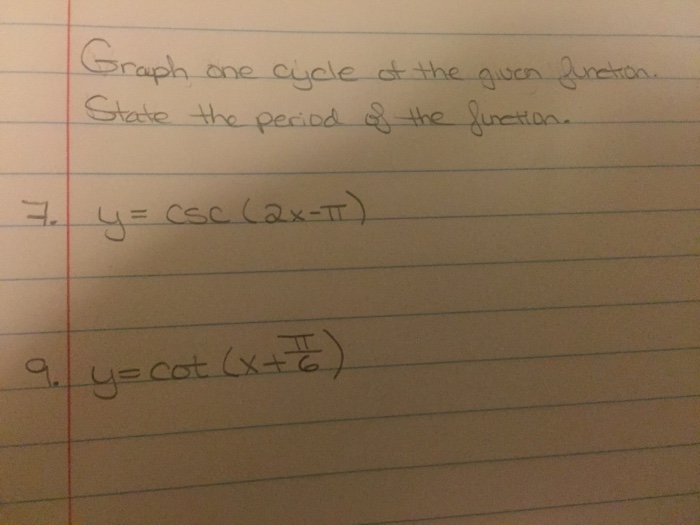 Graph one cycle of the given function.
State the period of the function.
7. y = csc (2x-π)
9. y=cot (x+π/6)